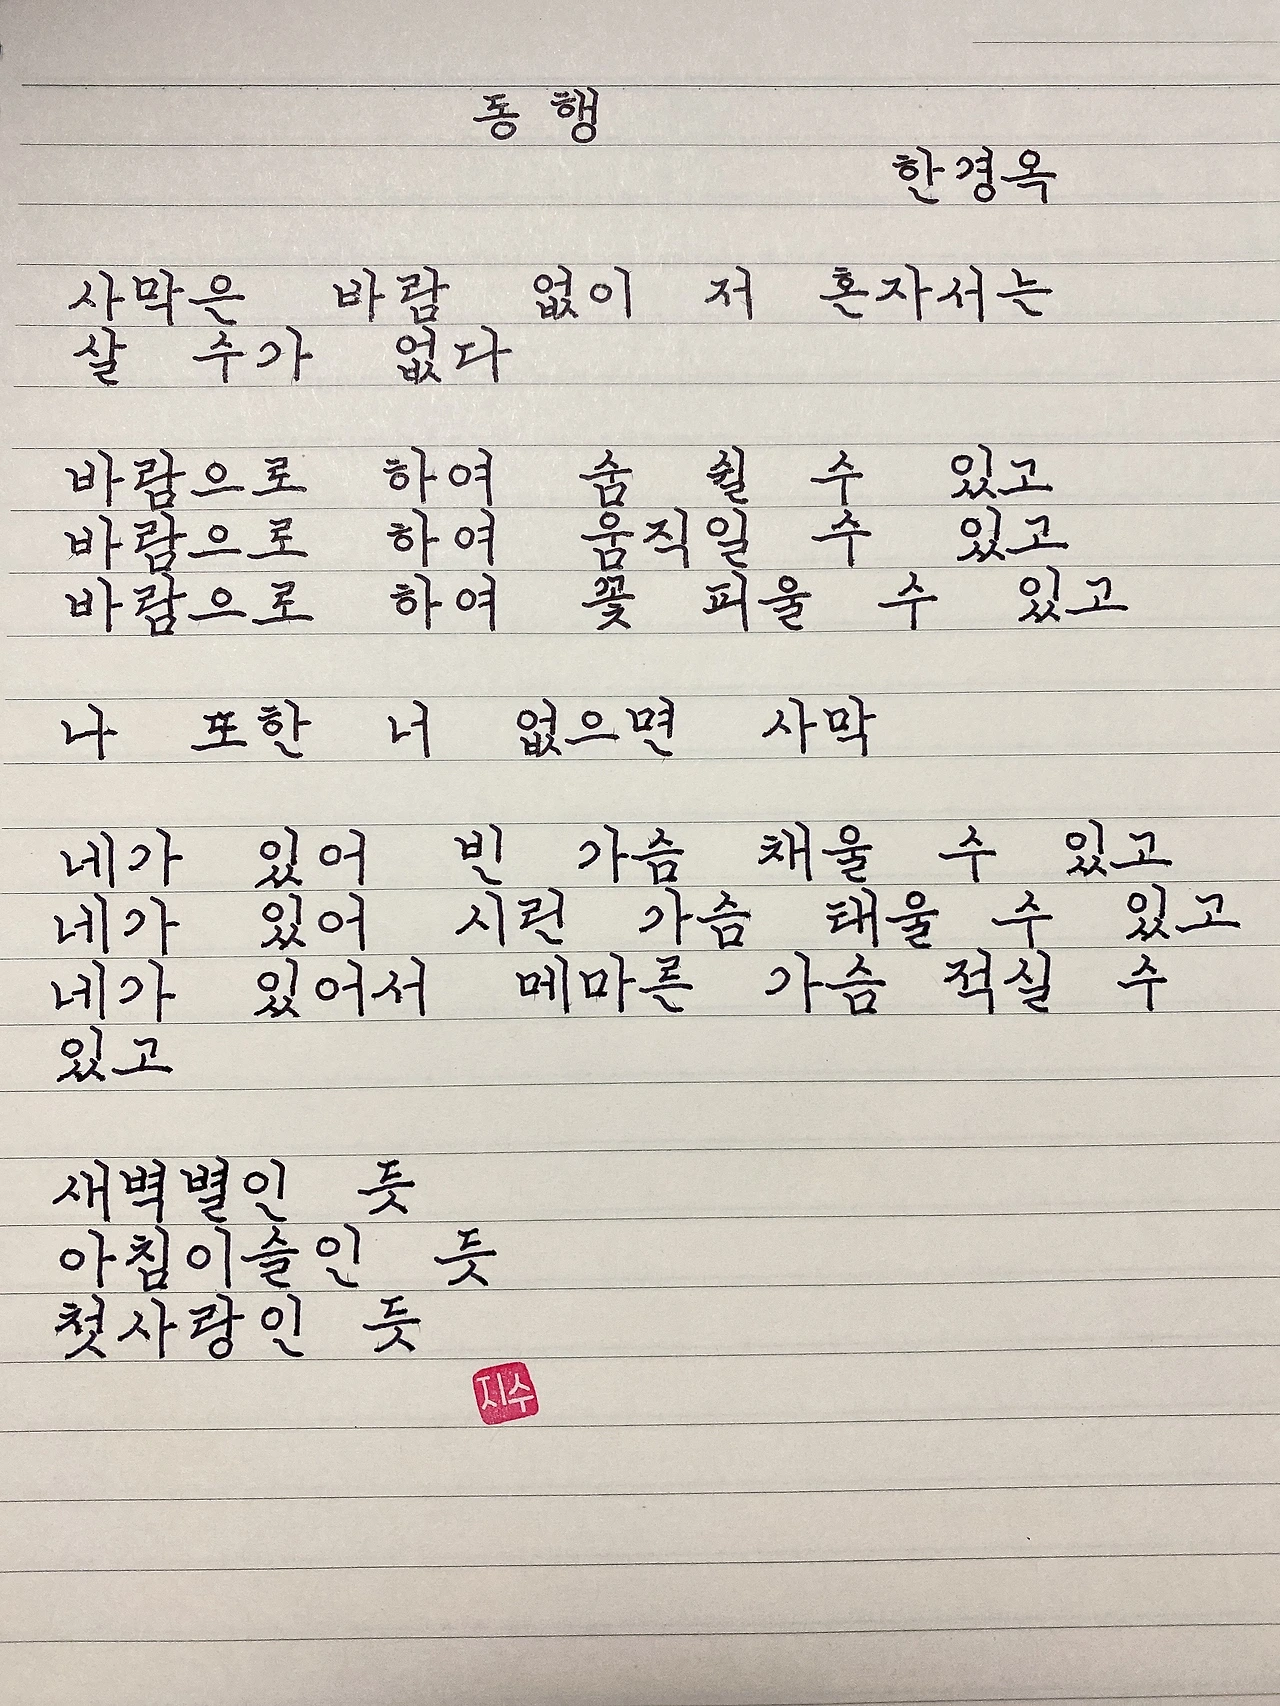 동행
한경옥
사막은 바람 없이 저 혼자서는
살 수가 없다
바람으로 하여 숨 쉴 수 있고
바람으로 하여 움직일 수 있고
바람으로 하여 꽃 피울 수 있고
나 또한 너 없으면 사막
네가 있어 빈 가슴 채울 수 있고
네가 있어 시린 가슴 태울 수 있고
네가 있어서 메마른 가슴 적실 수
있고
새벽별인 듯
아침이슬인 듯
첫사랑인 듯
지수